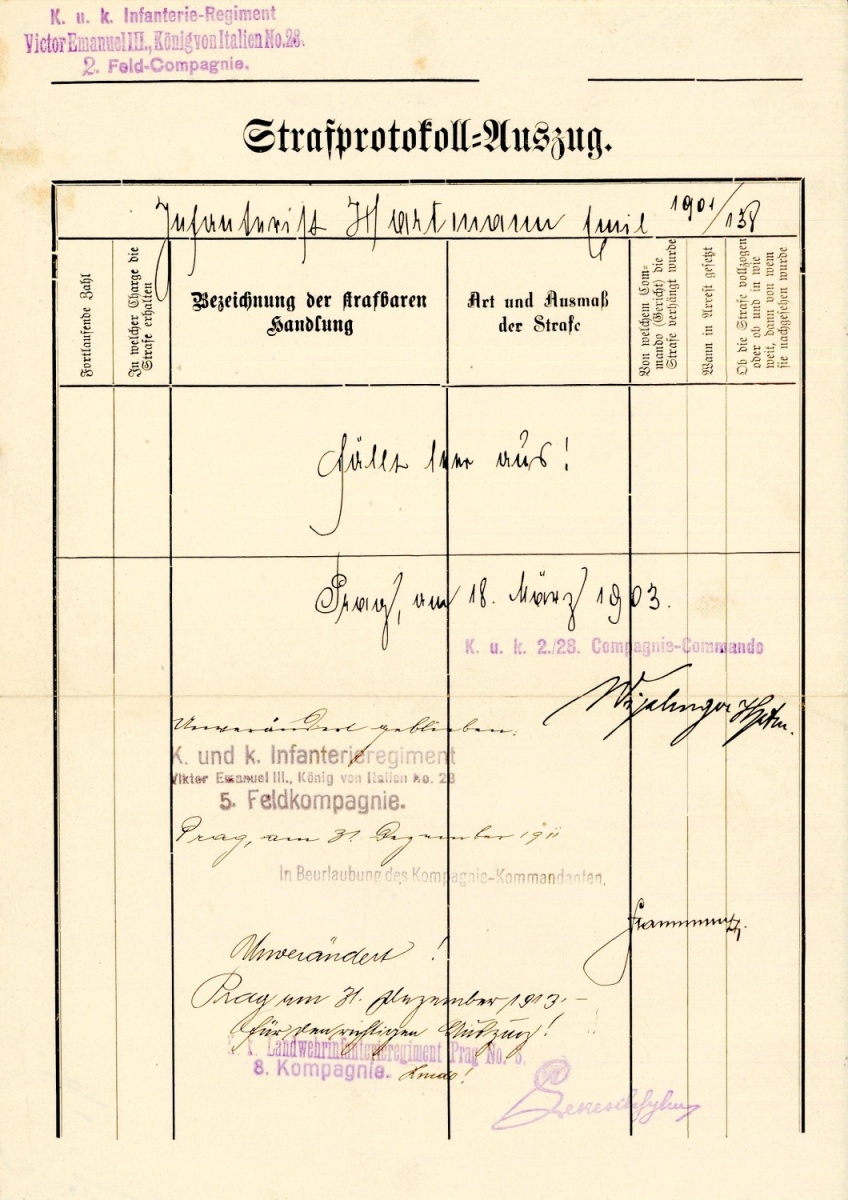 K. u. k. Infanterie-Regiment
Victor Emanuel III., König von Italien No. 28.
2. Feld-Compagnie.
Strafprotokoll-Auszug.
Infanterist Hartmann Emil 1901/138
Fortlaufende Zahl
In welcher Charge die Strafe erhalten
Bezeichnung der strafbaren
Handlung
Art und Ausmaß
der Strafe
Von welchem Com-
mando (Gericht) die
Strafe verhängt wurde
Wann in Arrest gesetzt
Ob die Strafe vollzogen
oder ob und in wie
weit, dann von wem
sie nachgesehen wurde
fällt leer aus!
Prag, am 18. März 1903.
K. u. k. 2./28. Compagnie-Commando
Hptm.
Unverändert geblieben.
K. und k. Infanterieregiment
Viktor Emanuel III., König von Italien No. 28
5. Feldkompagnie.
Prag, am 31. Dezember 1911
In Beurlaubung des Kompagnie-Kommandanten.
Unverändert!
Prag am 31. Dezember 1913.-
für den richtigen Auszug!
k. Landwehrinfanterieregiment Prag No. 8.
8. Kompagnie.